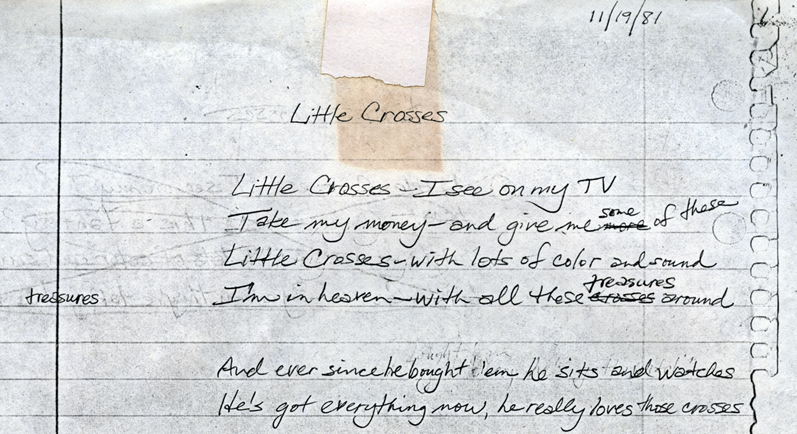 11/19/81
Little Crosses
Little Crosses - I see on my TV
Take my money - and give me more some of these
Little Crosses - with lots of color and sound
treasures I'm in heaven - with all these crosses treasures around
And ever since he bought 'em he sits and watches
He's got everything now, he really loves those crosses